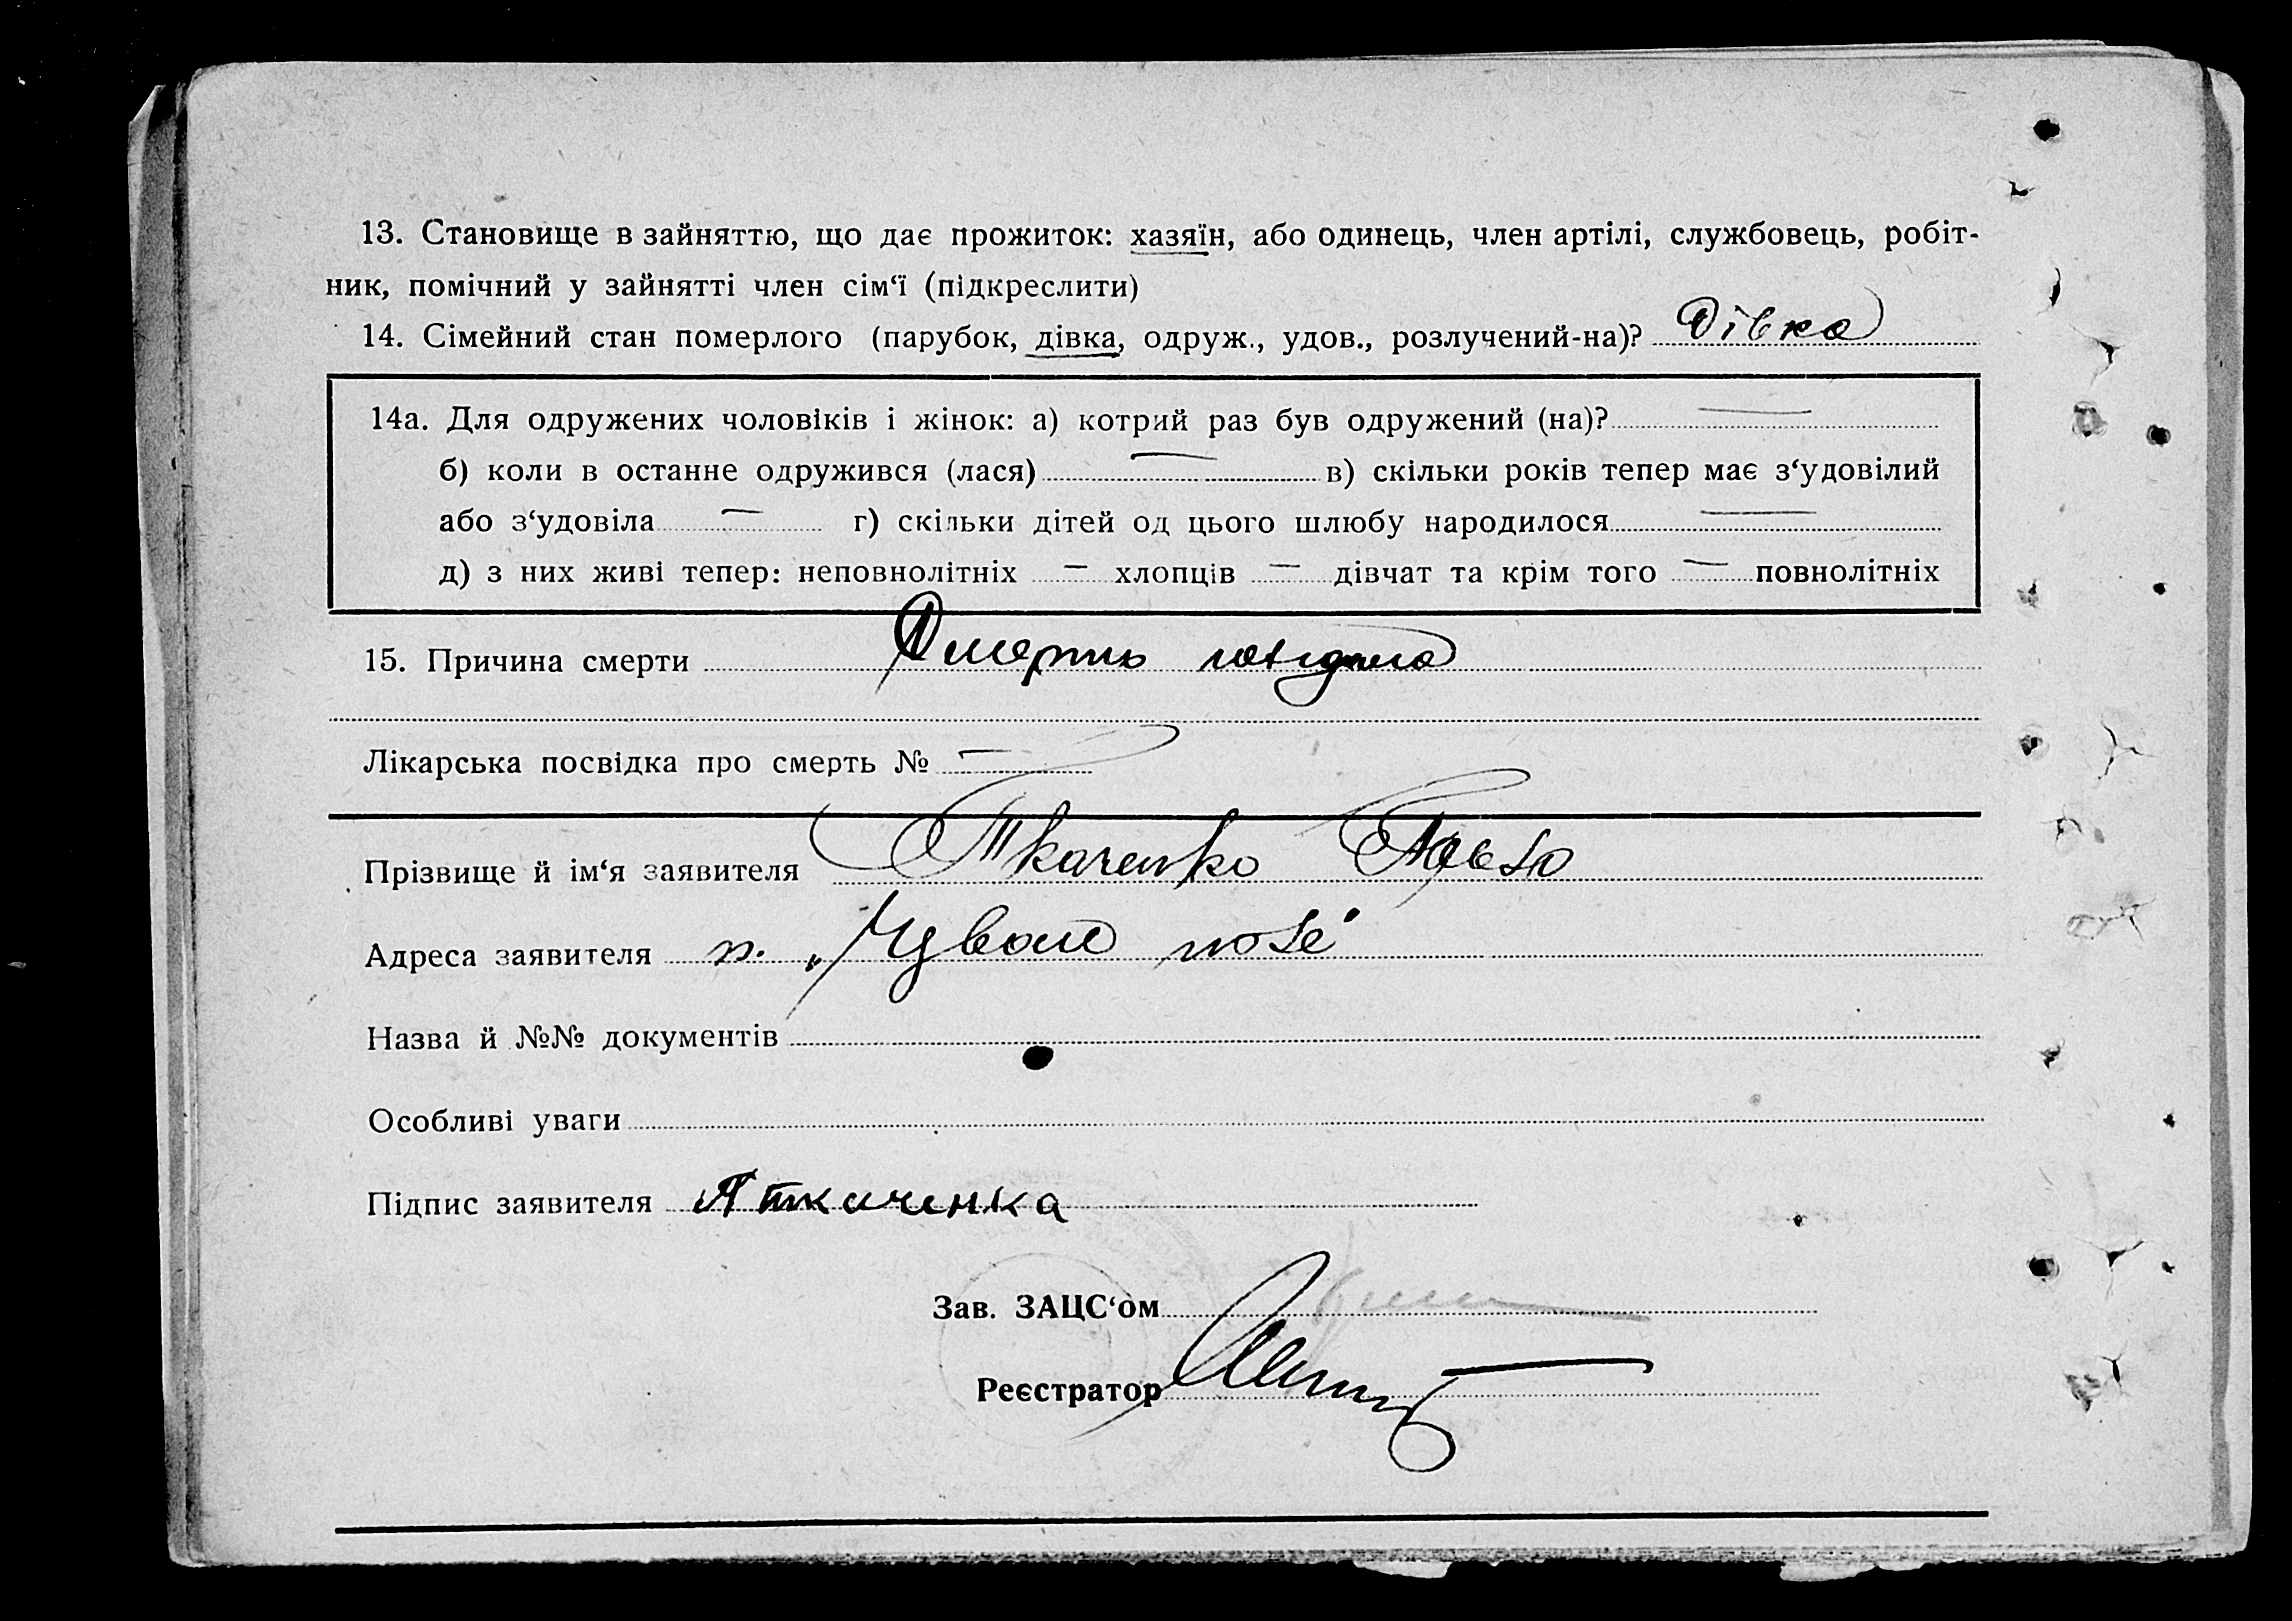 13. Становище в зайняттю, що дає прожиток: хазяїн, або одинець, член артілі, службовець, робіт-
ник, помічний у зайнятті член сім‘ї (підкреслити)
14. Сімейний стан померлого (парубок, дівка, одруж., удов., розлучений-на)? Дівка
14а. Для одружених чоловіків і жінок: а) котрий раз був одружений (на)? —
б) коли в останне одружився (лася) — в) скільки років тепер має з‘удовілий
або з‘удовіла — г) скільки дітей од цього шлюбу народилося —
д) з них живі тепер: неповнолітніх — хлопців — дівчат та крім того — повнолітніх
15. Причина смерти Смерть
Лікарська посвідка про смерть № —
Прізвище й ім‘я заявителя Ткаченко
Адреса заявителя п. поле"
Назва й №№ документів
Особливі уваги
Підпис заявителя Ткаченка
Зав. ЗАЦС‘ом
Реєстратор